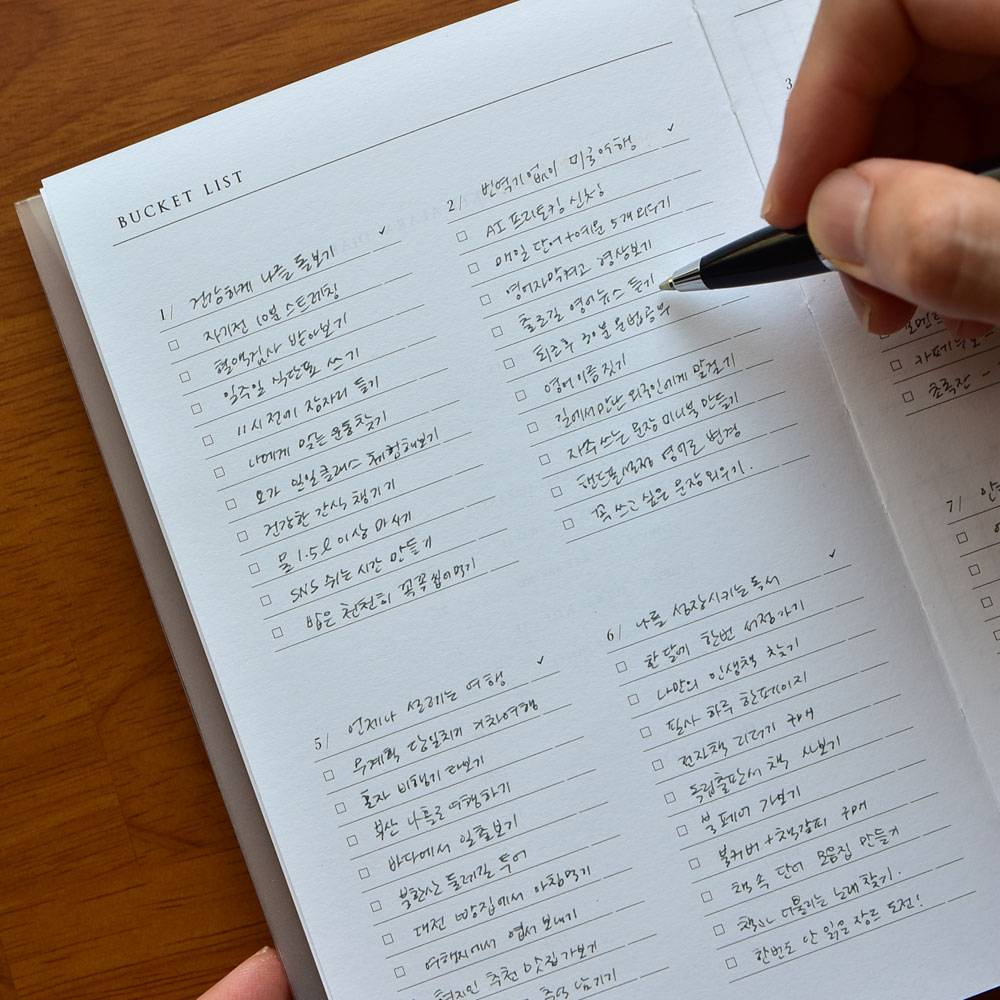 BUCKET LIST
1/ 건강하게 나를 돌보기 ✓
자기전 10분 스트레칭
혈액검사 받아보기
일주일 식단표 쓰기
11시 전에 잠자리 들기
나에게 맞는 운동찾기
요가 원일클래스 체험해보기
건강한 간식 챙기기
물 1.5ℓ 이상 마시기
SNS 쉬는 시간 만들기
밥은 천천히 꼭꼭 씹어먹기
2/ 번역기 없이 미국여행 ✓
AI 프리토킹 신청
매일 단어+예문 5개 외우기
영어자막켜고 영상보기
출근길 영어뉴스 듣기
퇴근후 30분 문법공부
영어이름짓기
길에서 만난 외국인에게 말걸기
자주쓰는 문장 미니북 만들기
핸드폰설정 영어로 변경
꼭 쓰고싶은 문장 외우기.
3
카페
초록잔 -
5/ 언제나 설레는 여행 ✓
무계획 당일치기 기차여행
혼자 비행기 타보기
부산 나홀로여행하기
바다에서 일출보기
북한산 둘레길 투어
대전 빵집에서 아침먹기
여행지에서 엽서 보내기
현지인 추천 맛집가보기
남기기
6/ 나를 성장시키는 독서 ✓
한달에 한번 서점가기
나만의 인생책 찾기
필사 하루 한페이지
전자책 리더기 구매
독립출판서 책 사보기
북페어 가보기
북커버+책갈피 구매
책 속 단어 모음집 만들기
책과 어울리는 노래찾기.
한번도 안 읽은 장르 도전!
7/